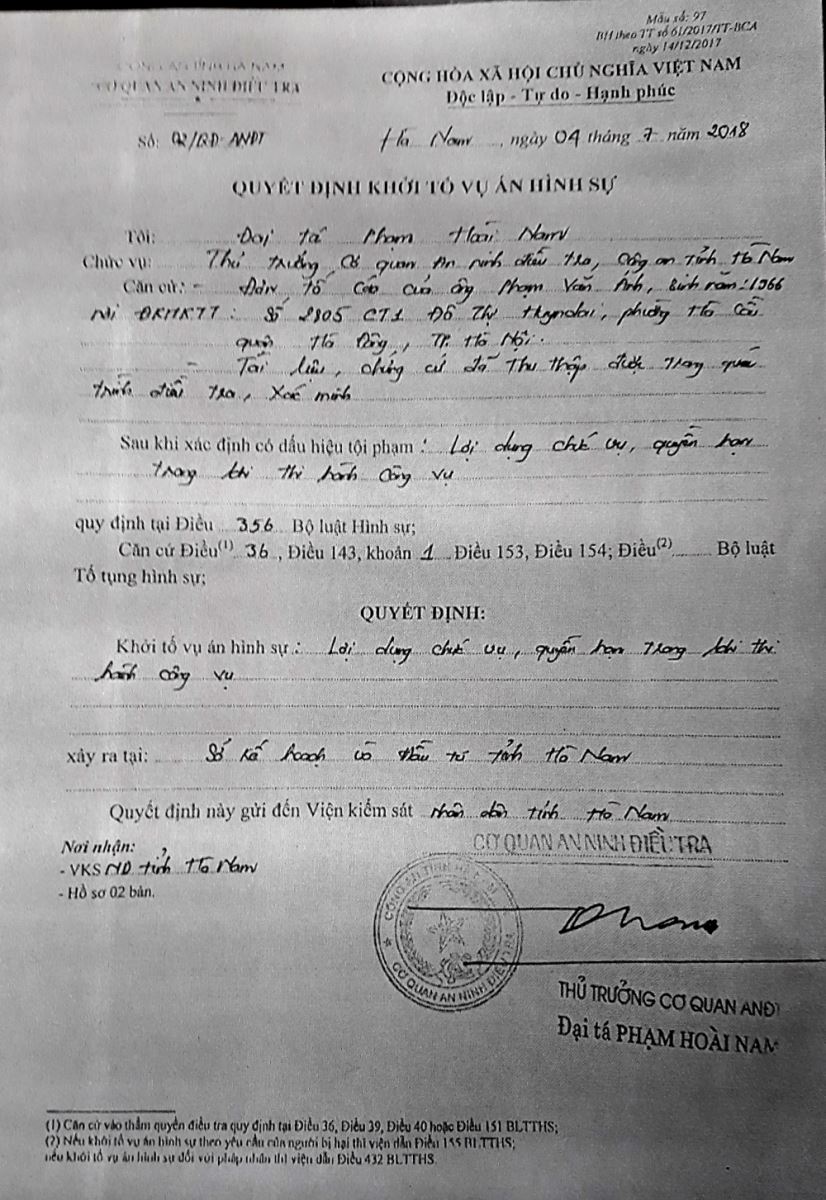 Mẫu số: 97
BH theo TT số 61/2017/TT-BCA
ngày 14/12/2017
CÔNG AN TỈNH HÀ NAM
CƠ QUAN AN NINH ĐIỀU TRA
CỘNG HÒA XÃ HỘI CHỦ NGHĨA VIỆT NAM
Độc lập - Tự do - Hạnh phúc
Số: 02/QĐ-ANĐT
Hà Nam, ngày 04 tháng 7 năm 2018
QUYẾT ĐỊNH KHỞI TỐ VỤ ÁN HÌNH SỰ
Tôi: Đại tá Phạm Hoài Nam
Chức vụ: Thủ trưởng Cơ quan An ninh điều tra, Công an tỉnh Hà Nam
Căn cứ: - Đơn tố cáo của ông Phạm Văn Ánh, sinh năm: 1966
Nơi ĐKHKTT: Số 2805 CT1 Đô Thị Huyndai, phường Hà Cầu
quận Hà Đông, TP. Hà Nội.
- Tài liệu, chứng cứ đã thu thập được trong quá
trình điều tra, xác minh
Sau khi xác định có dấu hiệu tội phạm: Lợi dụng chức vụ, quyền hạn
trong khi thi hành công vụ
quy định tại Điều 356 Bộ luật Hình sự;
Căn cứ Điều(1) 36, Điều 143, khoản 1 Điều 153, Điều 154; Điều(2) Bộ luật
Tố tụng hình sự;
QUYẾT ĐỊNH:
Khởi tố vụ án hình sự: Lợi dụng chức vụ, quyền hạn trong khi thi
hành công vụ
xảy ra tại: Sở kế hoạch và đầu tư tỉnh Hà Nam
Quyết định này gửi đến Viện kiểm sát nhân dân tỉnh Hà Nam
Nơi nhận:
- VKSND tỉnh Hà Nam
- Hồ sơ 02 bản.
CƠ QUAN AN NINH ĐIỀU TRA
CÔNG AN TỈNH HÀ NAM
CƠ QUAN AN NINH ĐIỀU TRA
THỦ TRƯỞNG CƠ QUAN ANĐT
Đại tá PHẠM HOÀI NAM
(1) Căn cứ vào thẩm quyền điều tra quy định tại Điều 36, Điều 39, Điều 40 hoặc Điều 151 BLTTHS;
(2) Nếu khởi tố vụ án hình sự theo yêu cầu của người bị hại thì viện dẫn Điều 155 BLTTHS;
nếu khởi tố vụ án hình sự đối với pháp nhân thì viện dẫn Điều 432 BLTTHS.